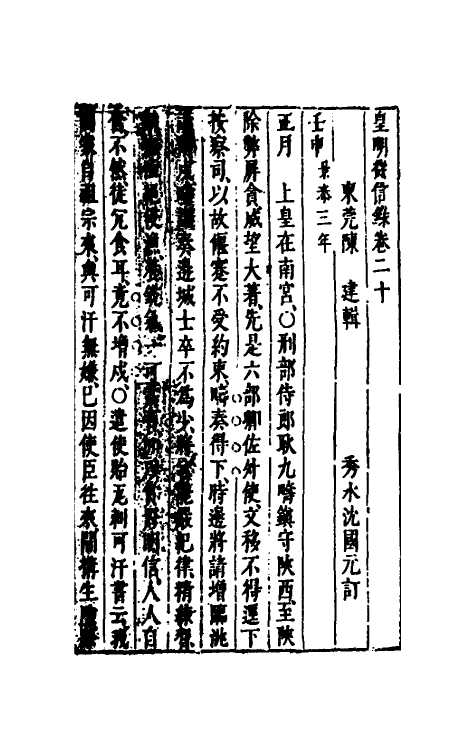 皇明從信錄卷二十
東莞陳　建輯　秀水沈國元訂
壬申景泰三年
正月　上皇在南宮〇刑部侍郎耿九疇鎮守陝西至陝
除弊屏貪威望大著先是六部卿佐外使文移不得逕下
按察司以故偃蹇不受約束疇奏得下時邊將請增臨洮
戍疇議邊城士卒不為少將能嚴紀律精練習
使信人人自
奮不然徒冗食耳竟不增戍〇遣使貽瓦剌可汗書云我
國家自祖宗來與可汗無嫌已因使臣往來間構生